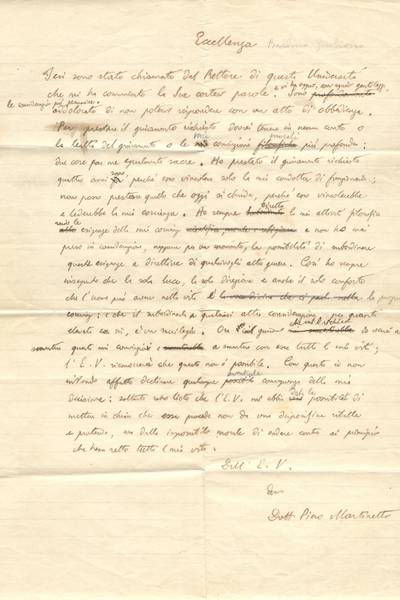 Eccellenza
Ieri sono stato chiamato dal Rettore di questa Università
che mi ha comunicato le Sue cortesi parole. Sono
addolorato di non poter rispondere con un atto di obbedienza.
Per prestare il giuramento richiesto dovrei tenere in nessun conto o
la lealtà del giuramento o le mie convinzioni morali più profonde:
due cose per me egualmente sacre. Ho prestato il giuramento richiesto
quattro anni or sono, perché esso vincolava solo la mia condotta di funzionario:
non posso prestare quello che oggi si chiede, perché esso vincolerebbe
e lederebbe la mia coscienza. Ho sempre diretto la mia attività filosofica
secondo le esigenze della mia coscienza e non ho mai
preso in considerazione, neppure per un momento, la possibilità di subordinare
queste esigenze a direttive di qualsivoglia altro genere. Così ho sempre
insegnato che la sola luce, la sola direzione e anche il solo conforto
che l'uomo può avere nella vita è la propria
coscienza; e che il subordinarla a qualsiasi altra considerazione, per quanto
elevata essa sia, è un sacrilegio. Ora col giuramento che mi è richiesto io verrei a
smentire queste mie convinzioni e a smentire con esse tutta la mia vita:
l'E. V. riconoscerà che questo non è possibile. Con questo io non
intendo affatto declinare qualunque eventuale conseguenza della mia
decisione: soltanto sono lieto che l'E. V. mi abbia dato la possibilità di
mettere in chiaro che essa procede non da una disposizione ribelle
e proterva, ma dalla impossibilità morale di andare contro ai principî
che hanno retto tutta la mia vita.
Dell'E. V.
Dott. Piero Martinetti